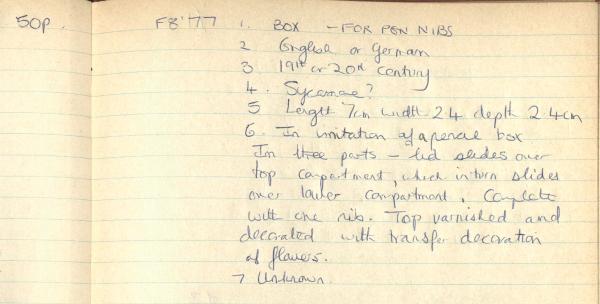 50p. F8'77 1. BOX - FOR PEN NIBS
2 English or German
3 19th or 20th century
4. Sycamore?
5 Length 7cm width 2.4 depth 2.4cm
6. In imitation of a pencil box
In three parts - lid slides over
top compartment, which in turn slides
over lower compartment. Complete
with one nib. Top varnished and
decorated with transfer decoration
of flowers.
7 Unknown.